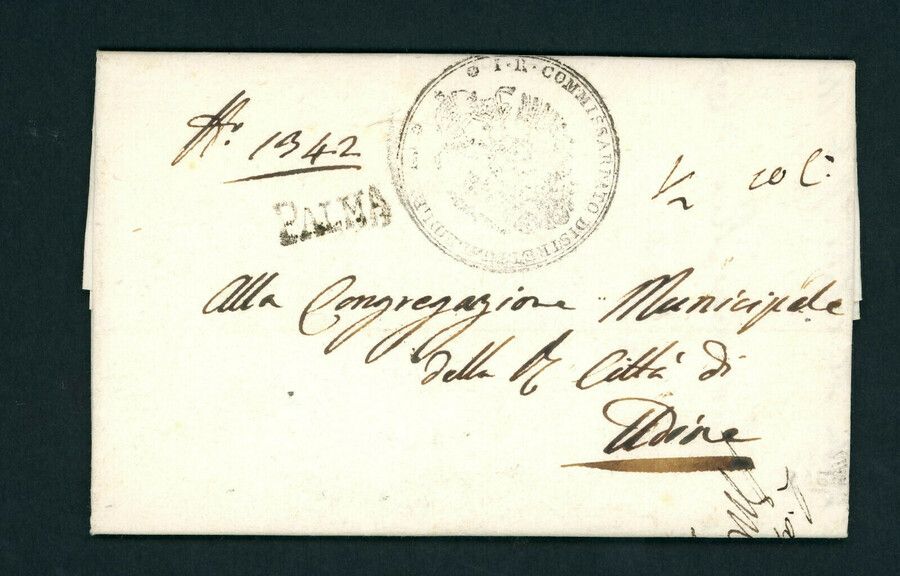 N.º 1342
PALMA
I·R·COMMISSARIATO DISTRETTUALE DI
½
Alla Congregazione Municipale
della R Città di
Udine